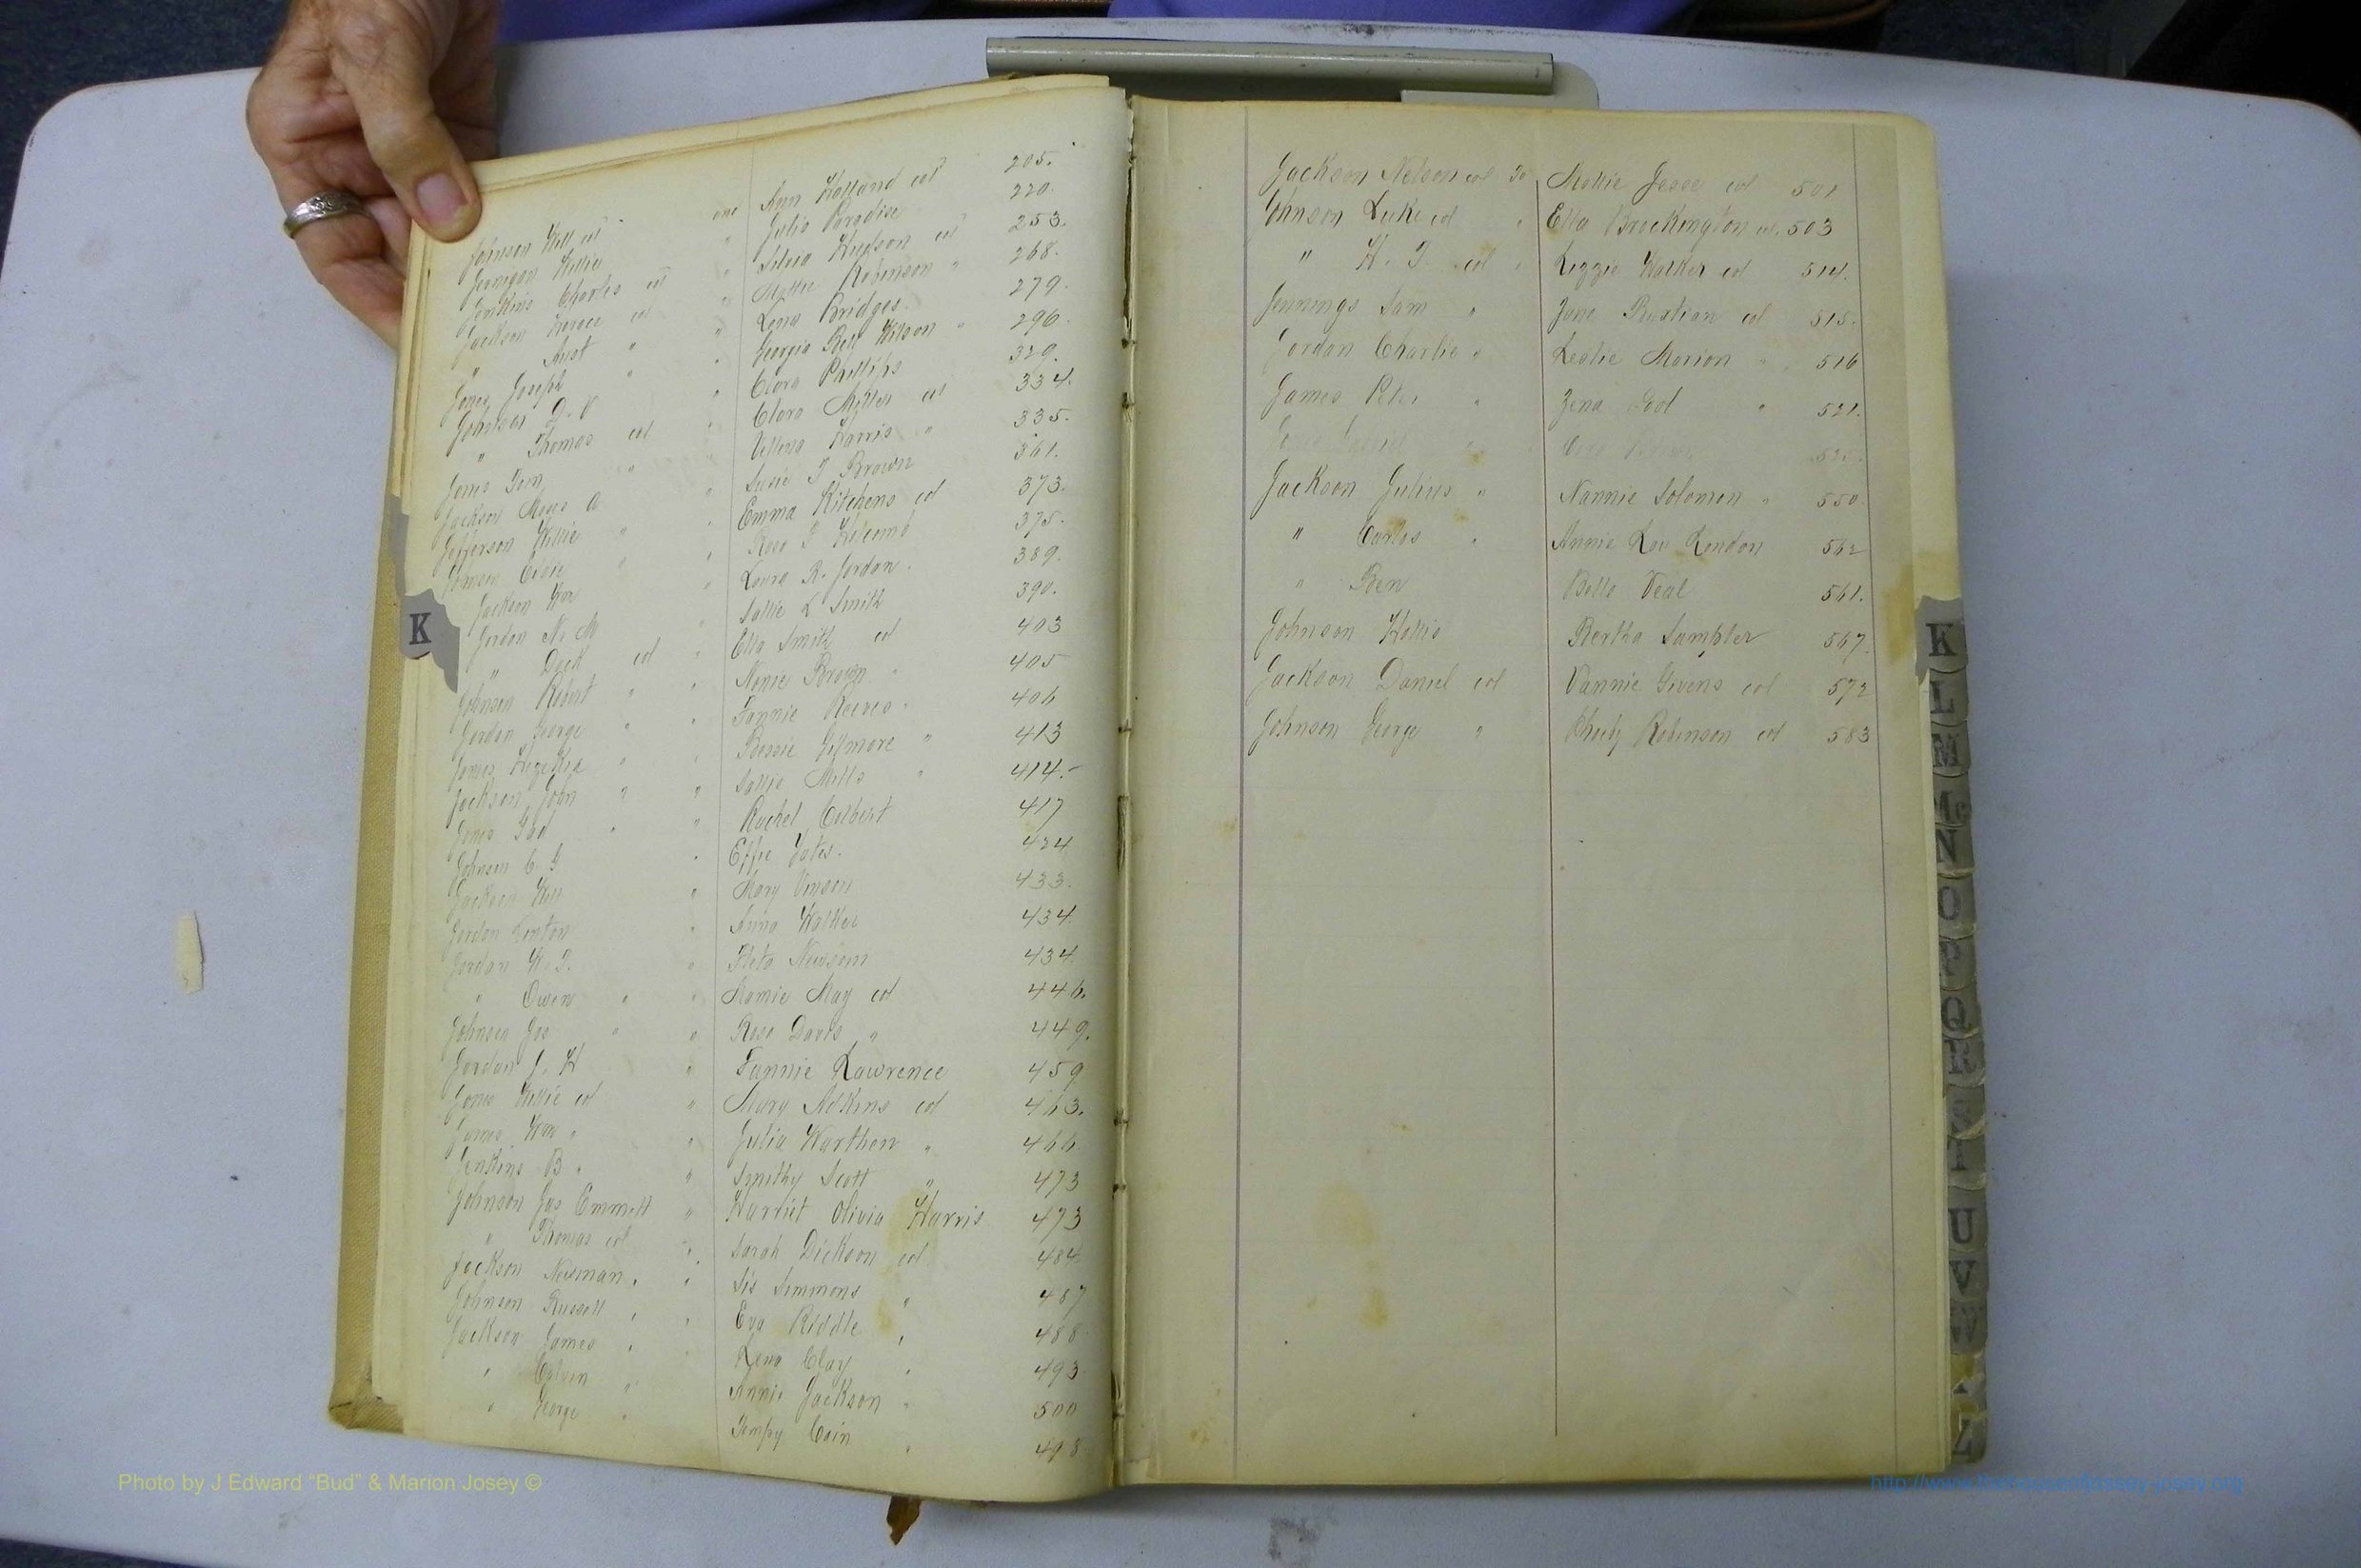 Johnson Will col and Ann Holland col 205.
Jernigan Willie " Julia Paradise 220.
Jenkins Charles col " Silvia Hudson col 253.
Jackson Horace col " Mollie Robinson " 268.
" Aust " " Lena Bridges 279.
Jones Joseph " " Georgia Bell Wilson " 296.
Johnson D. V " Clara Phillips 329.
" Thomas col " Clara Miller col 334.
Jones Tom " Harris " 335.
Jackson Moses A " Susie T Brown 361.
Jefferson Willie " " Emma Kitchens col 373.
Johnson " " Rosa 375.
Jackson Wm Laura R. Jordan. 389.
Jordan N. M " Sallie L Smith 390.
" Dock col " Ella Smith col 403
Johnson Robert " " Nonie Brown " 405
Jordan George " " Fannie Reeves " 406
Jones " " Bessie Gilmore " 413
Jackson John " " Sallie Mills " 414.
Jones " " Rachel Colbert 417
Johnson C. G " Effie Yates. 424
Jackson Will " Mary Vinson 433.
Jordan Linton " Anna Walker 434.
Jordan W. T. " Fleta Newsom 434.
" Owen " " Mamie May col 446.
Johnson Jas " " Rosa Davis " 449.
Jordan J. H " Fannie Lawrence 459
Jones Willie col " Mary Adkins col 463.
James Wm " " Julia Warthen " 466.
Jenkins B " " Smithy Scott " 473
Johnson Jas Emmett " Harriet Olivia Harris 473
" Thomas col " Sarah Dickson col 484
Jackson Newman " " Sis Simmons " 487
Johnson Russell " " Eva Riddle " 488
Jackson James " " Lena Clay " 493
" Calvin " Annie Jackson " 500
" George " Tempy Cain " 498
K
Jackson Nelson col To Mollie Jesse col 501
Johnson Luke col " Ella Brockington col. 503
" W. T. col " Lizzie Walker col 514.
Jennings Sam " Jane col 515.
Jordan Charlie " Leslie Marion " 516
James Peter " Zena " 521.
Jackson Julius " Nannie Solomon " 550
" Carlos " Annie Lou London 562
" Ben Belle Veal 561.
Johnson Hollis Bertha Sumpter 567.
Jackson Daniel col Vannie Givens col 572
Johnson George " Robinson col 583
K
L
M
Mc
N
O
P
Q
R
S
T
U
V
W
Z
Photo by J Edward “Bud” & Marion Josey ©
http://www.thehouseofjossey-josey.org